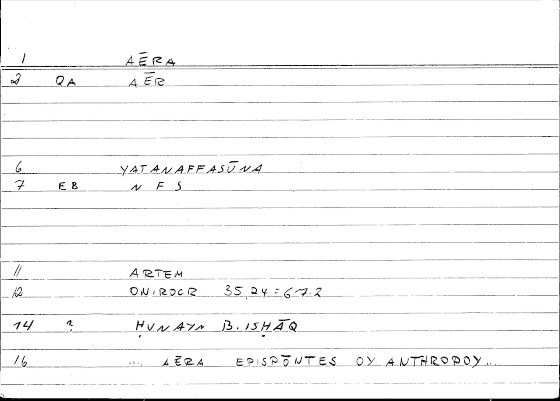 1 AĒRA
2 QA AĒR
6 YATANAFFASŪNA
7 EB N F S
11 ARTEM
12 ONIROCR 35,24 = 67.2
14 ? ḤUNAYN B. ISḤĀQ
16 ... AĒRA EPISPŌNTES OY ANTHROPOY...